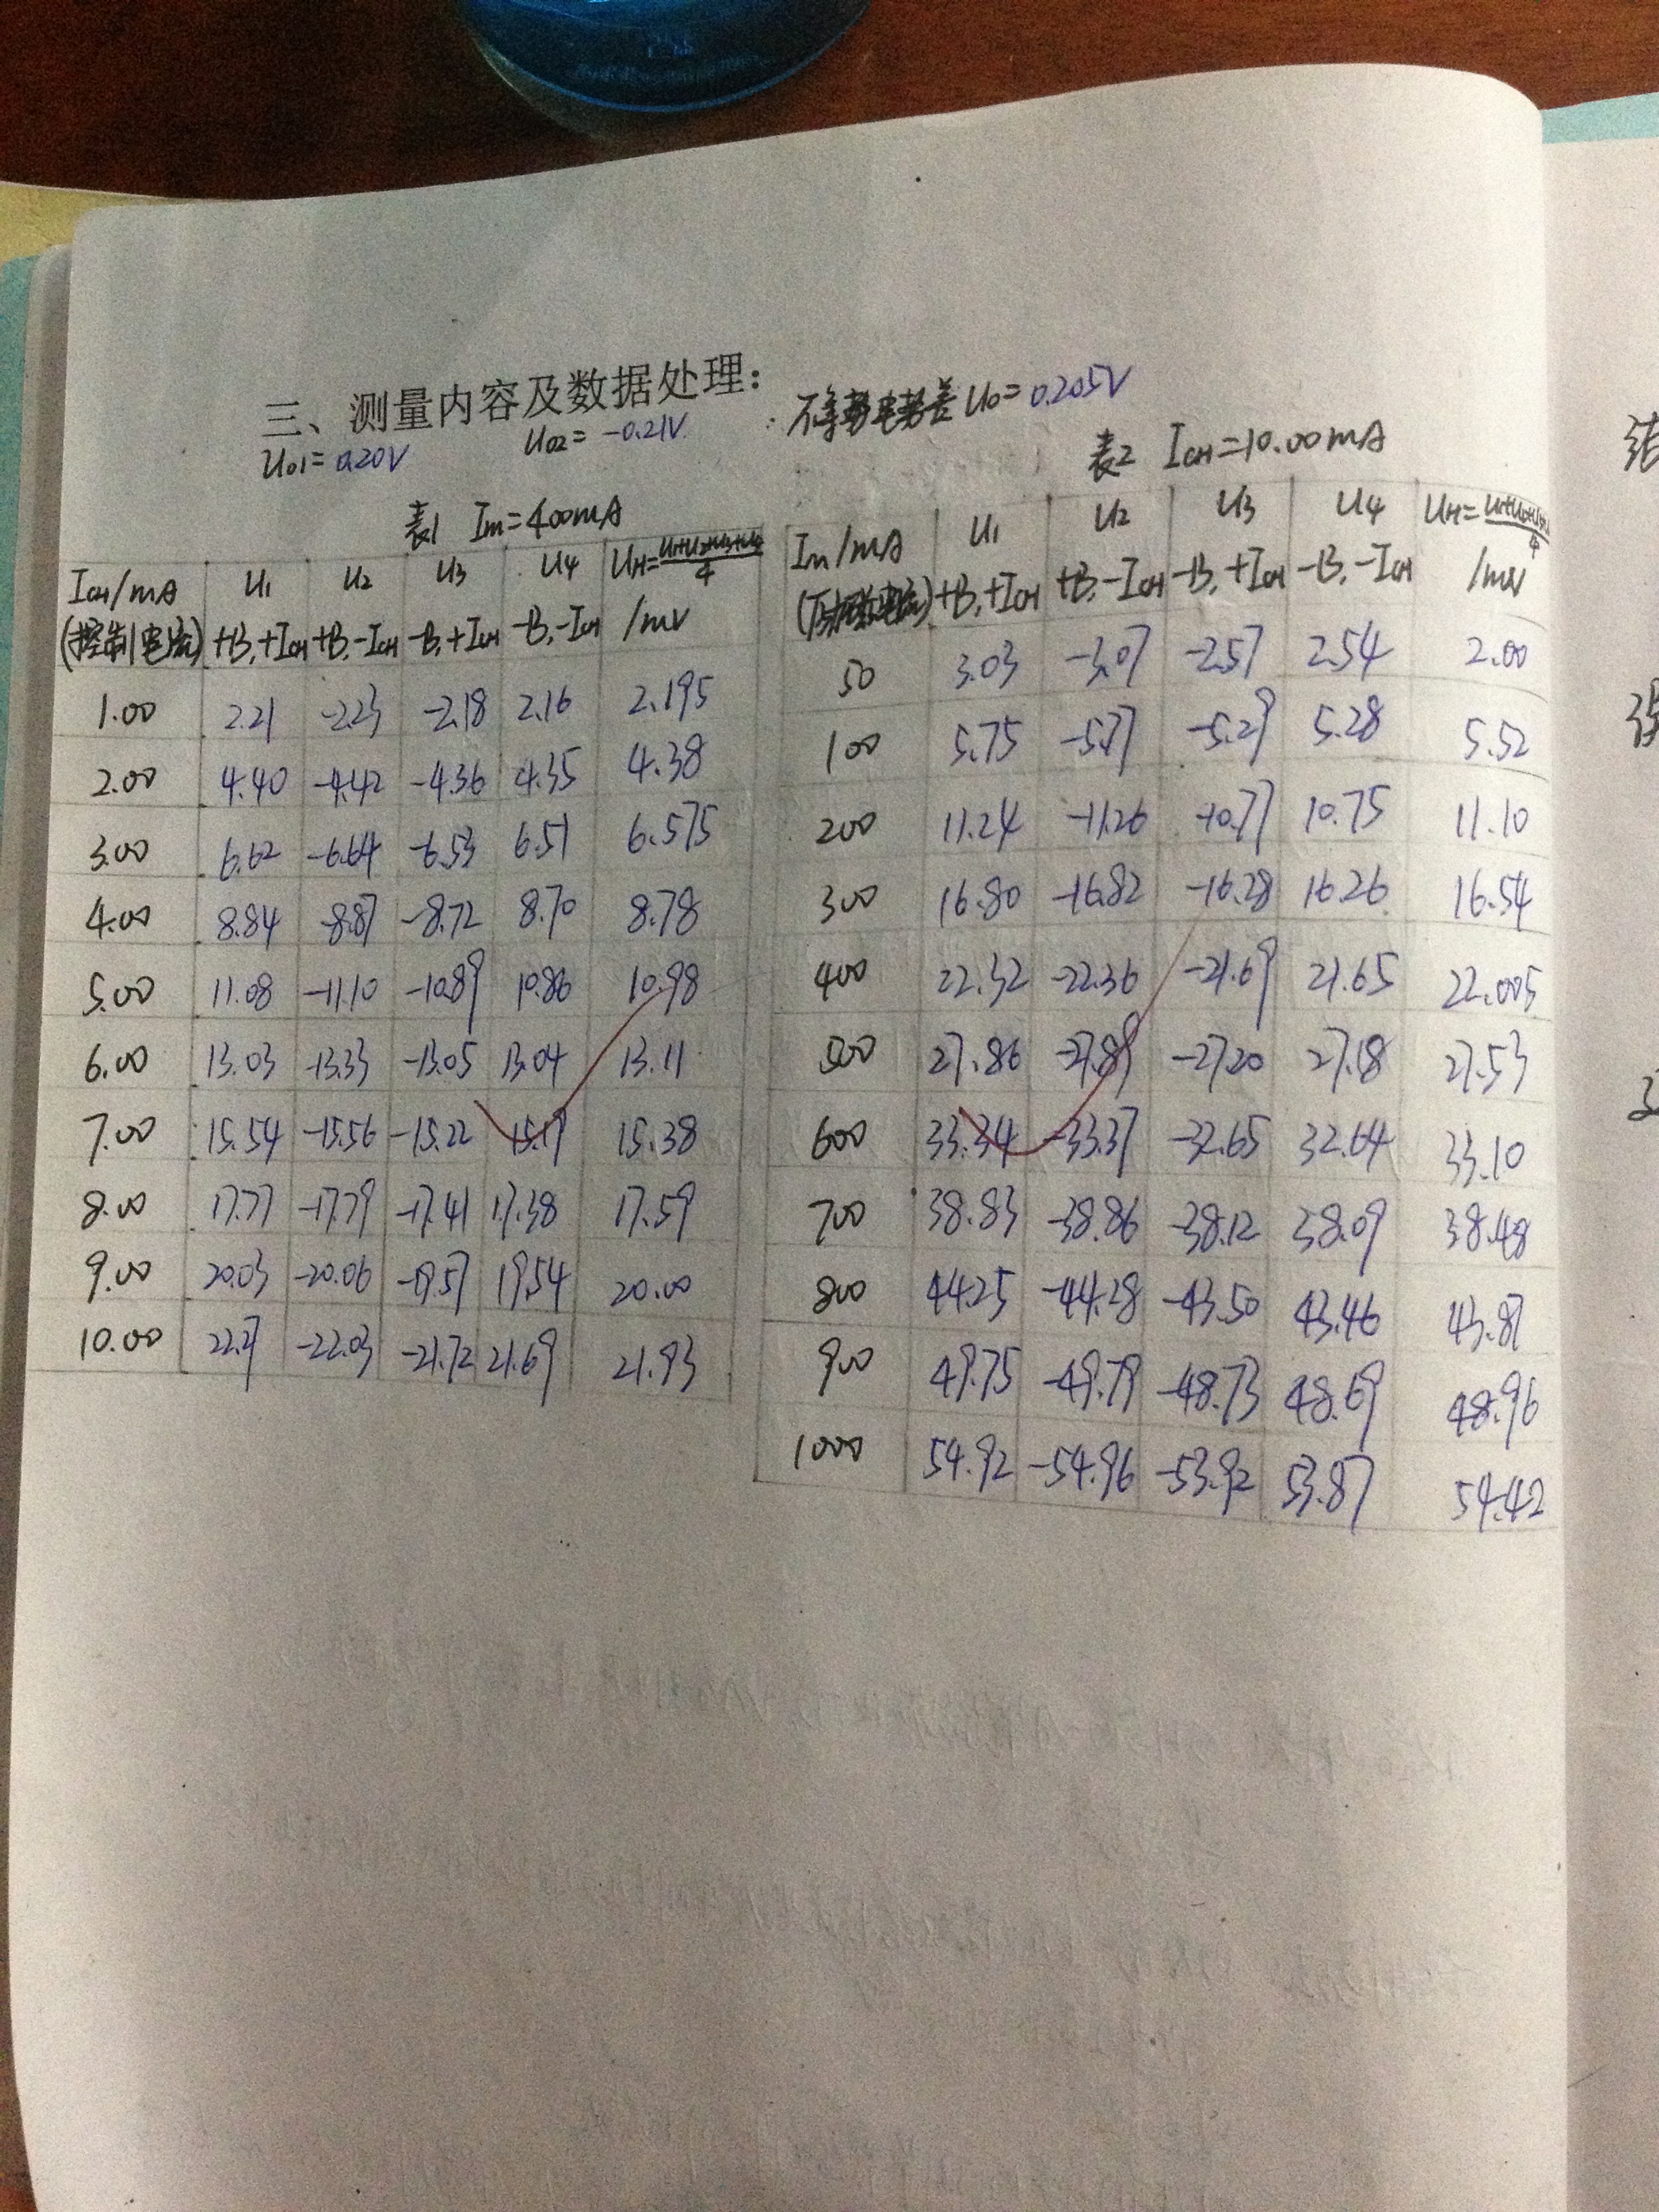 三、测量内容及数据处理:
U01=0.20V U02=-0.21V
不等势电势差U0=0.205V
表1 Im=400mA
ICH/mA U1 U2 U3 U4 UH=U1+U2+U3+U4/4
(控制电流) +B,+ICH +B,-ICH -B,+ICH -B,-ICH /mV
1.00 2.21 -2.23 -2.18 2.16 2.195
2.00 4.40 -4.42 -4.36 4.35 4.38
3.00 6.62 -6.64 -6.53 6.51 6.575
4.00 8.84 -8.87 -8.72 8.70 8.78
5.00 11.08 -11.10 -10.89 10.86 10.98
6.00 13.03 -13.33 -13.05 13.04 13.11
7.00 15.54 -15.56 -15.22 15.19 15.38
8.00 17.77 -17.79 -17.41 17.38 17.59
9.00 20.03 -20.06 -19.57 19.54 20.00
10.00 22.27 -22.03 -21.72 21.69 21.93
表2 ICH=10.00mA
Im/mA U1 U2 U3 U4 UH=U1+U2+U3+U4/4
(励磁电流) +B,+ICH +B,-ICH -B,+ICH -B,-ICH /mV
50 3.03 -3.07 -2.57 2.54 2.00
100 5.75 -5.77 -5.29 5.28 5.52
200 11.24 -11.26 -10.77 10.75 11.10
300 16.80 -16.82 -16.28 16.26 16.54
400 22.32 -22.36 -21.69 21.65 22.005
500 27.86 -27.89 -27.20 27.18 27.53
600 33.34 -33.37 -32.65 32.64 33.10
700 38.83 -38.86 -38.12 38.09 38.48
800 44.25 -44.28 -43.50 43.46 43.87
900 49.75 -49.79 -48.73 48.69 48.96
1000 54.92 -54.96 -53.92 53.87 54.42